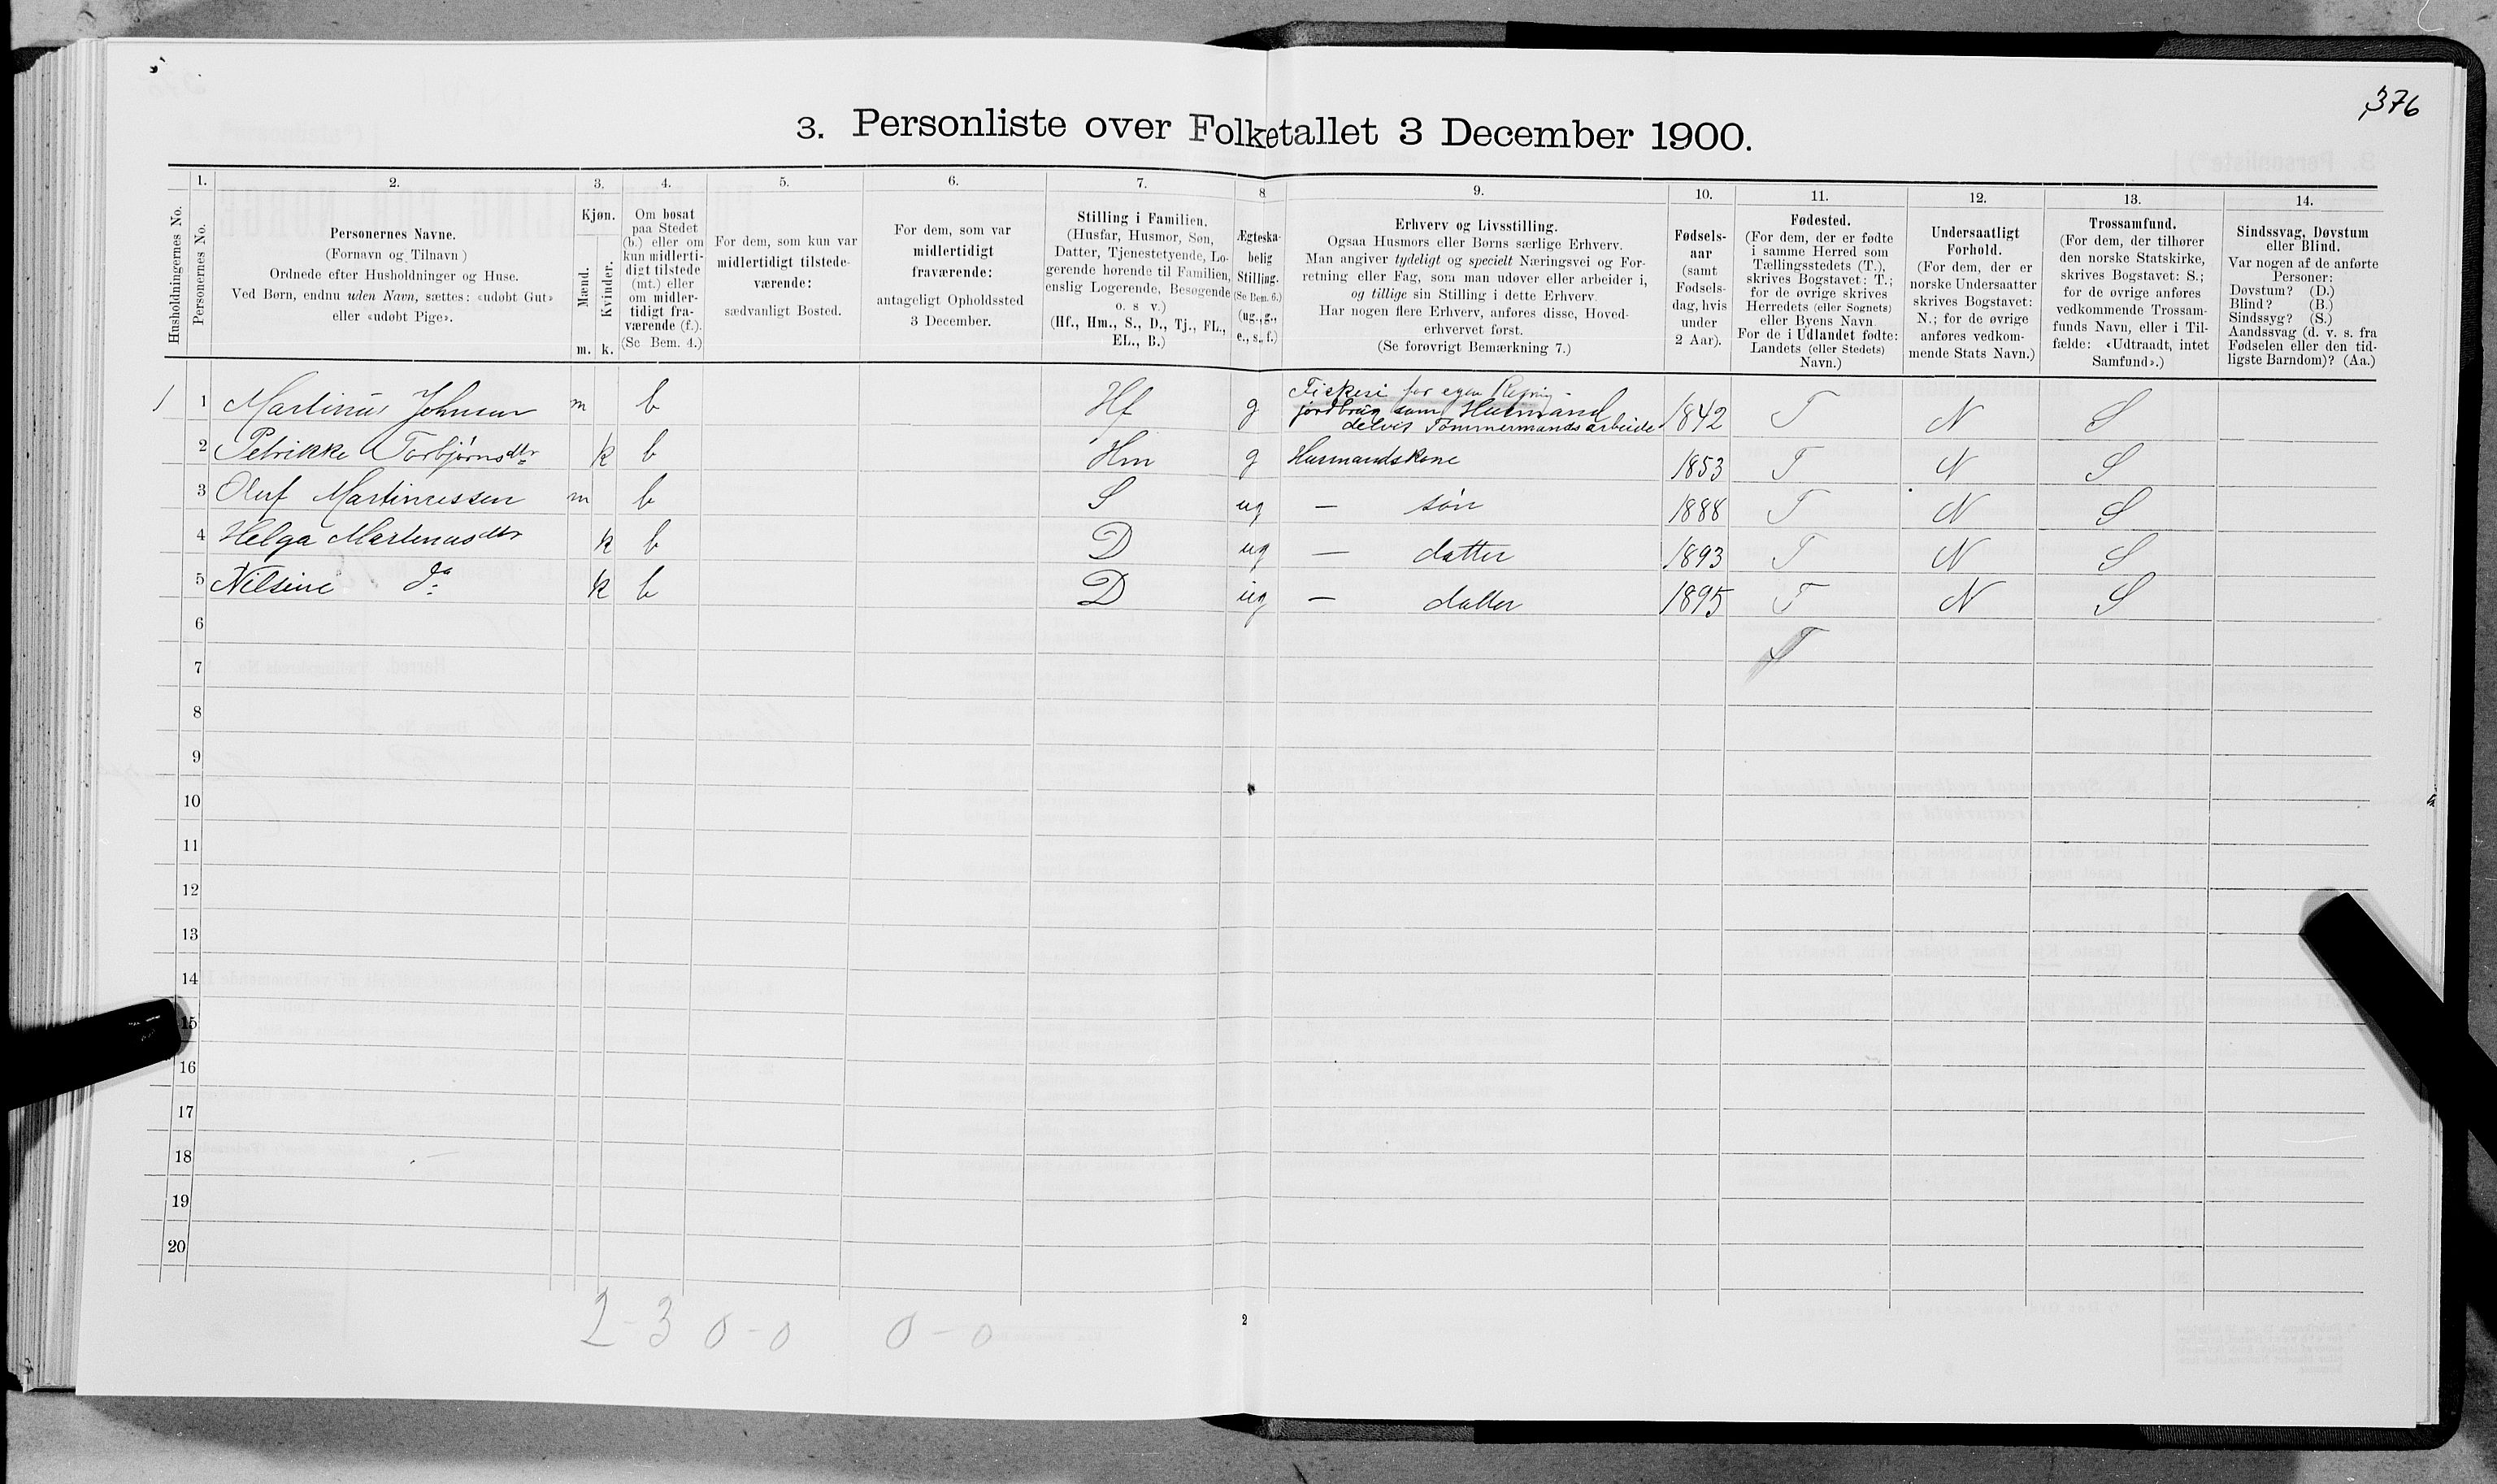 376
3. Personliste over Folketallet 3 December 1900.
1. 2. 3. 4. 5. 6. 7. 8 9. 10. 11. 12. 13. 14.
Husholdningernes No.
Personernes No.
Personernes Navne.
(Fornavn og Tilnavn)
Ordnede efter Husholdninger og Huse.
Ved Børn, endnu uden Navn, sættes: «udøbt Gut»
eller «udøbt Pige».
Kjøn.
Mænd.
Kvinder.
m. k.
Om bosat
paa Stedet
(b.) eller om
kun midlerti-
digt tilstede
(mt.) eller
om midler-
tidigt fra-
værende (f.).
(Se Bem. 4.)
For dem, som kun var
midlertidigt tilstede-
værende:
sædvanligt Bosted.
For dem, som var
midlertidigt
fraværende:
antageligt Opholdssted
3 December.
Stilling i Familien.
(Husfar, Husmor, Søn,
Datter, Tjenestetyende, Lo-
gerende hørende til Familien,
enslig Logerende, Besøgende
o. s v.)
(Hf., Hm., S., D., Tj., FL.,
EL., B.)
Ægteska-
belig
Stilling.
(Se Bem. 6.)
(ug., g.,
e., s., f.)
Erhverv og Livsstilling.
Ogsaa Husmors eller Børns særlige Erhverv.
Man angiver tydeligt og specielt Næringsvei og For-
retning eller Fag, som man udøver eller arbeider i,
og tillige sin Stilling i dette Erhverv.
Har nogen flere Erhverv, anføres disse, Hoved-
erhvervet først.
(Se forøvrigt Bemærkning 7.)
Fødsels-
aar
(samt
Fødsels-
dag, hvis
under
2 Aar).
Fødested.
(For dem, der er fødte
i samme Herred som
Tællingsstedets (T.),
skrives Bogstavet: T.;
for de øvrige skrives
Herredets (eller Sognets)
eller Byens Navn.
For de i Udlandet fødte:
Landets (eller Stedets)
Navn.)
Undersaatligt
Forhold.
(For dem, der er
norske Undersaatter
skrives Bogstavet:
N.; for de øvrige
anføres vedkom-
mende Stats Navn.)
Trossamfund.
(For dem, der tilhører
den norske Statskirke,
skrives Bogstavet: S.;
for de øvrige anføres
vedkommende Trossam-
funds Navn, eller i Til-
fælde: «Udtraadt, intet
Samfund».)
Sindssvag, Døvstum
eller Blind.
Var nogen af de anførte
Personer:
Døvstum? (D.)
Blind? (B.)
Sindssyg? (S.)
Aandssvag (d. v. s. fra
Fødselen eller den tid-
ligste Barndom)? (Aa.)
Fiskeri for egen Regning
1 1 Martinus Johnsen m b Hf g jordbrug som Husmand 1842 T N S
delvis Tømmermandsarbeide
2 Petrikke Torbjørnsdtr k b Hm g Husmandskone 1853 T N S
3 Oluf Martinussen m b S ug — søn 1888 T N S
4 Helga Martinusdtr k b D ug — datter 1893 T N S
5 Nilsine do k b D ug — datter 1895 T N S
6 T
7
8
9
10
11
12
13
14
15
16
17
18
19
20
2-3 0-0 0-0
2